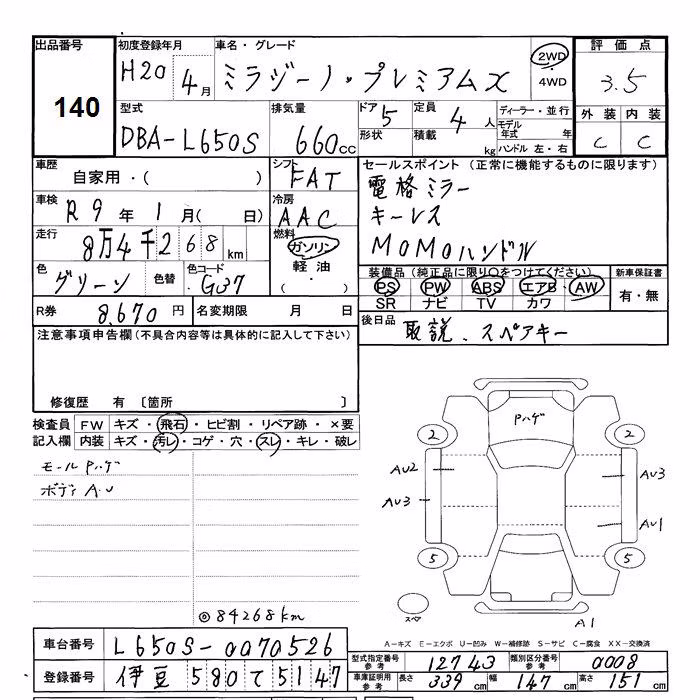 出品番号 初度登録年月 車名・グレード 評価点
140 H20 4月 ミラジーノ・プレミアムX 2WD 4WD 3.5
型式 排気量 ドア 5 定員 4人 ディーラー・並行 外装 内装
DBA-L650S 660cc 形状 積載 kg モデル年式 年 ハンドル 左・右 C C
車歴 自家用・( ) シフト FAT セールスポイント (正常に機能するものに限ります)
電格ミラー
車検 R9年 1月( 日) 冷房 AAC キーレス
走行 8万4千268km 燃料 ガソリン 軽油 ・( ) MOMOハンドル
色 グリーン 色替 色コード G37 装備品(純正品に限り○をつけてください) 新車保証書
PS PW ABS エアB AW 有・無
SR ナビ TV カワ
R券 8,670円 名変期限 月 日 後日品 取説、スペアキー
注意事項申告欄(不具合内容等は具体的に記入して下さい)
修復歴 有 〔箇所 〕
検査員記入欄 FW キズ・飛石・ヒビ割・リペア跡・×要
内装 キズ・汚レ・コゲ・穴・スレ・キレ・破レ
モールPハゲ
ボディAU
Pハゲ
2 2
AU2 AU3
AU3 AU1
5 5
スペア
A1
◎84268km
A-キズ E-エクボ U-凹ミ W-補修跡 S-サビ C-腐食 XX-交換済
車台番号 L650S-0070526 型式指定番号 参考 12743 類別区分番号 参考 0008
登録番号 伊豆 580 て 5147 車庫証明用 参考 長さ 339cm 幅 147cm 高さ 151cm